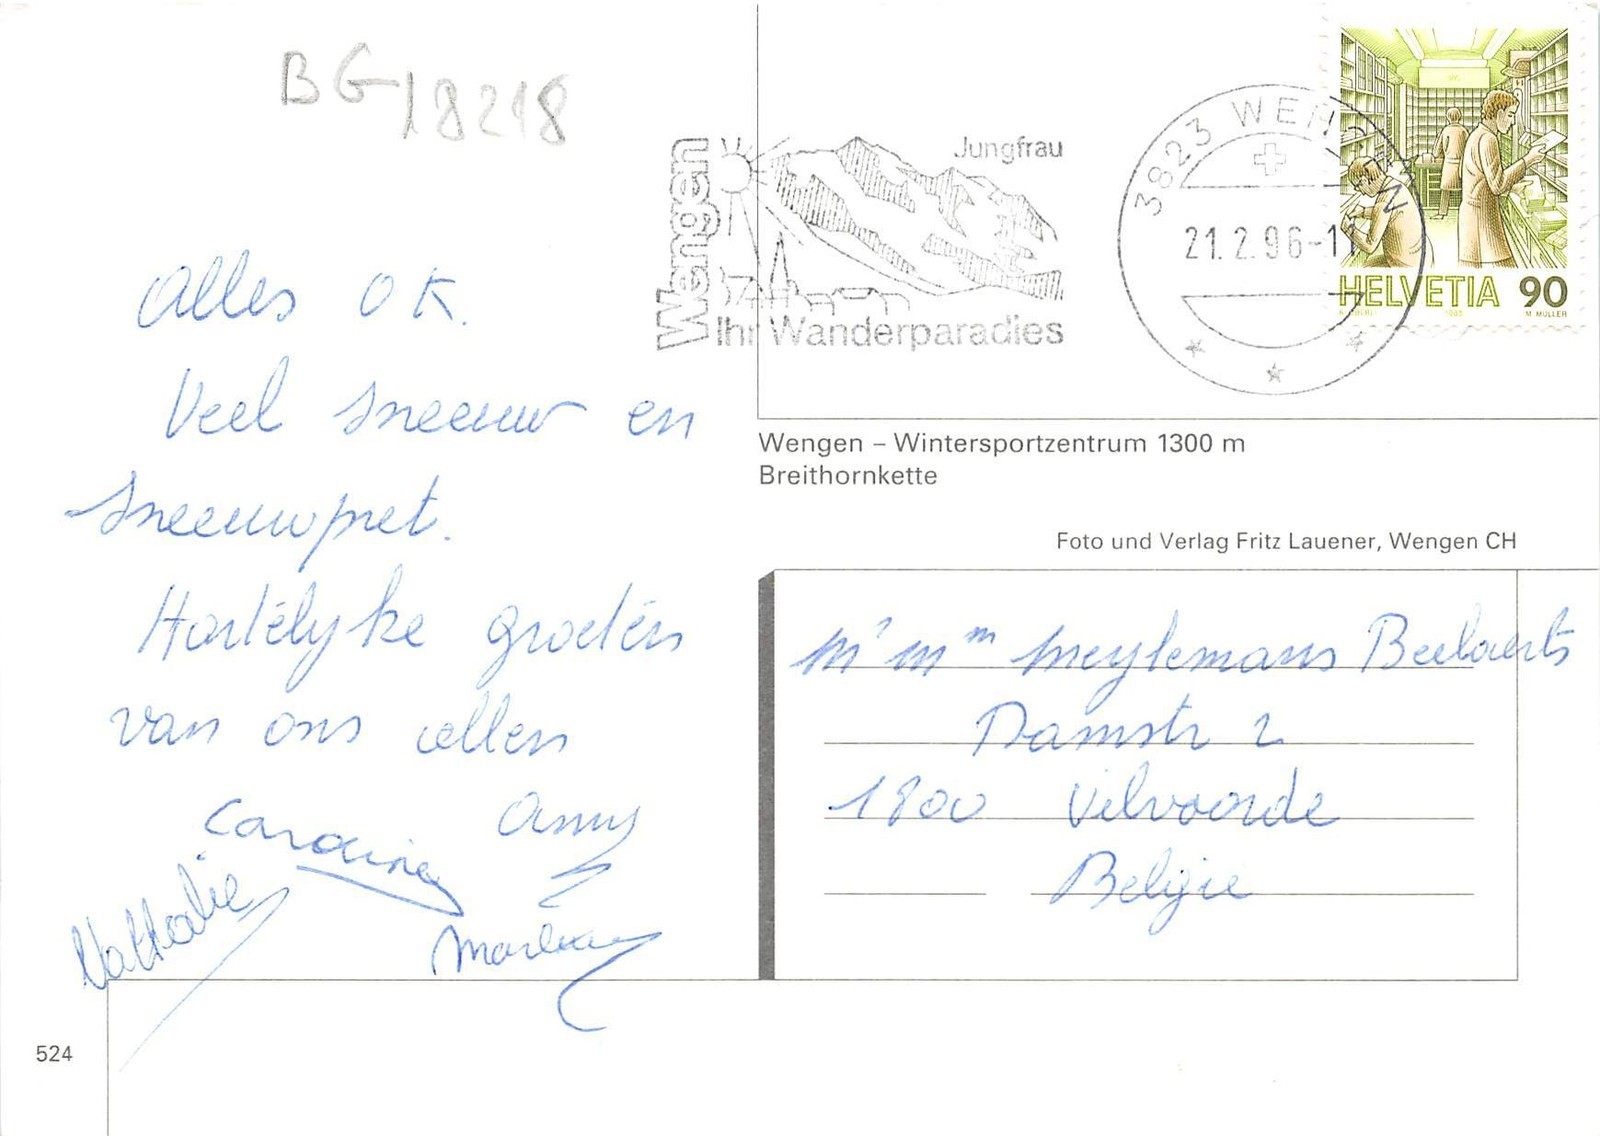 BG18218
Alles OK.
Veel sneeuw en
sneeuwpret.
Hartelyke groeten
van ons allen
Caroline Anny
Nathalie
Wengen
Jungfrau
Ihr Wanderparadies
3823 WENGEN
21.2.96-11
HELVETIA 90
1985 M. MÜLLER
Wengen – Wintersportzentrum 1300 m
Breithornkette
Foto und Verlag Fritz Lauener, Wengen CH
Mr Mm Meylemans Beelaerts
Damstr 2
1800 Vilvoorde
België
524